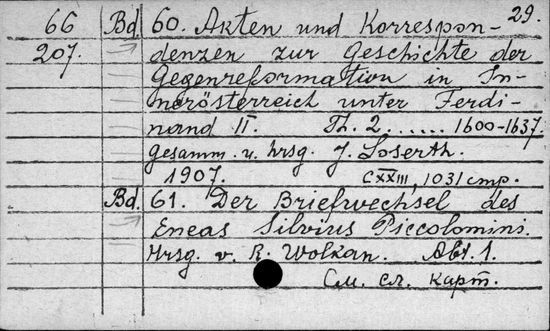 29.
66 Bd. 60. Akten und Korrespon-
207. denzen zur Geschichte der
Gegenreformation in In-
nerösterreich unter Ferdi-
nand II. Th. 2 ...... 1600-1637.
gesamm. u. hrsg. J. Loserth.
1907. CXXIII, 1031 стр.
Bd. 61. Der Briefwechsel des
Eneas Silvius Piccolomini.
Hrsg. v. R. Wolkan. Abt. 1.
См. сл. карт.